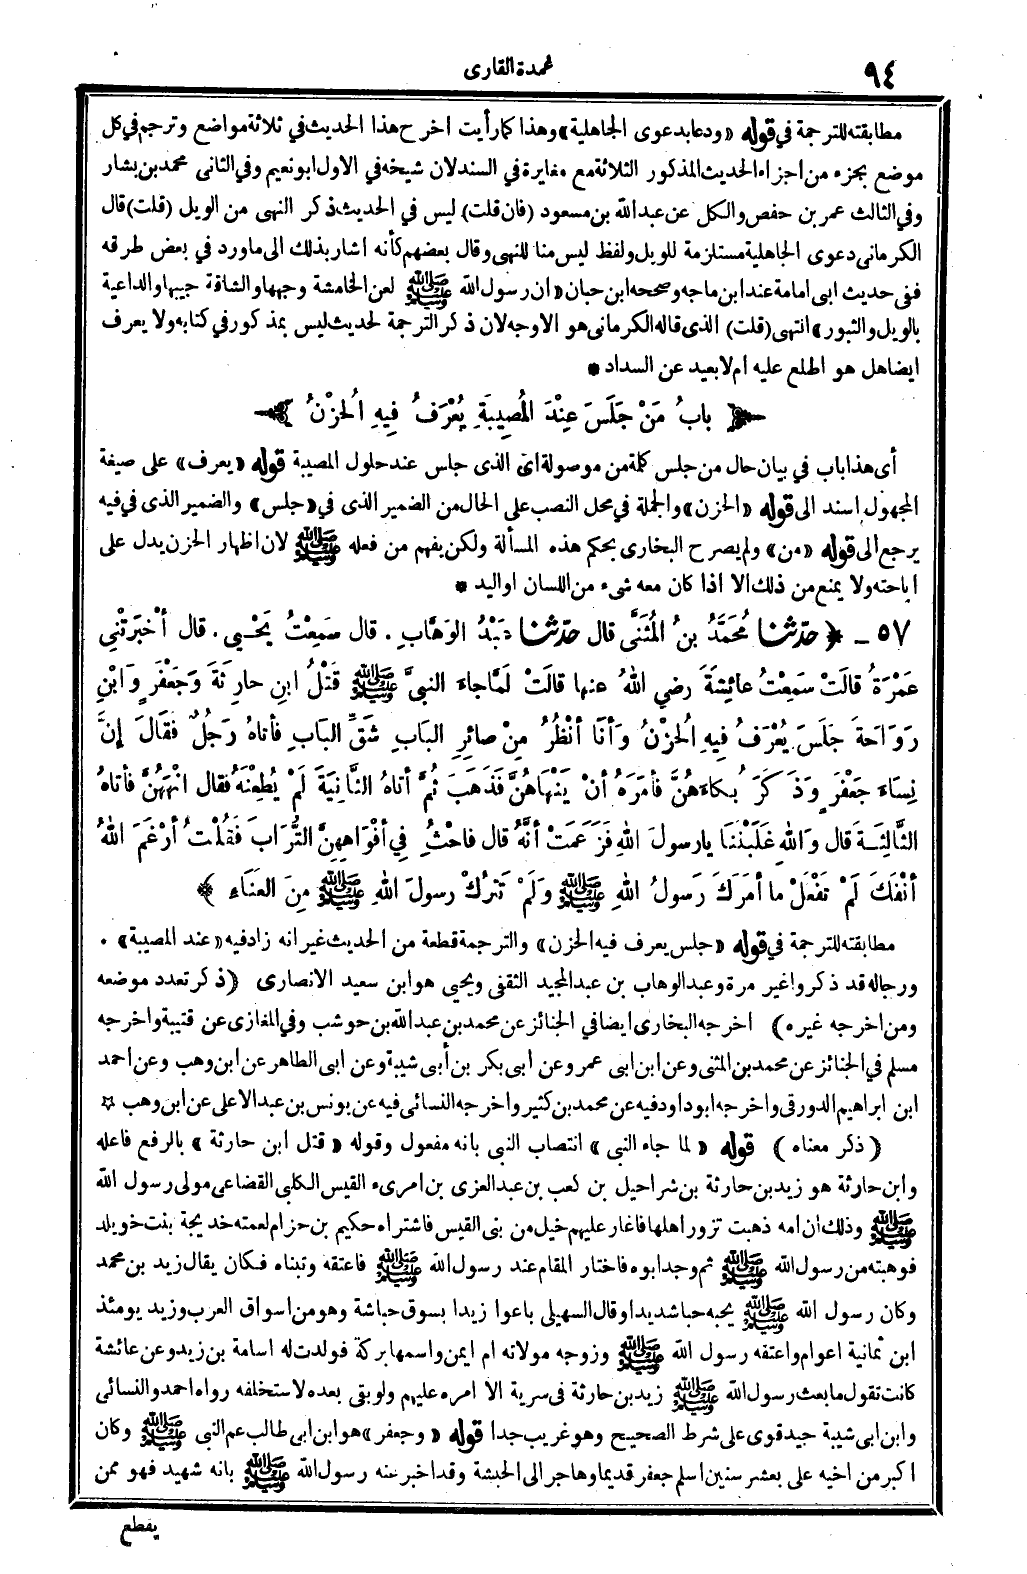 ٩٤
عمدة القارى
مطابقته للترجمة في قوله «ودعا بدعوى الجاهلية» وهذا كما رأيت اخرج هذا الحديث في ثلاثة مواضع وترجم في كل
موضع بجزء من اجزاء الحديث المذكور الثلاثة مع مغايرة في السند لان شيخه في الاول ابو نعيم وفي الثانى محمد بن بشار
وفي الثالث عمر بن حفص والكل عن عبد الله بن مسعود (فان قلت) ليس في الحديث ذكر النهى من الويل (قلت) قال
الكرمانى دعوى الجاهلية مستلزمة للويل ولفظ ليس منا للنهى وقال بعضهم كأنه اشار بذلك الى ماورد في بعض طرقه
ففى حديث ابى امامة عند ابن ماجه وصححه ابن حبان «ان رسول الله ﷺ لعن الخامشة وجهها والشاقة جيبها والداعية
بالويل والثبور» انتهى (قلت) الذى قاله الكرمانى هو الاوجه لان ذكر الترجمة لحديث ليس بمذكور في كتابه ولا يعرف
ايضا هل هو اطلع عليه ام لا بعيد عن السداد *
﴿ بابُ مَنْ جَلَسَ عِنْدَ المُصِيبَةِ يُعْرَفُ فِيهِ الحزْنُ ﴾
أى هذا باب في بيان حال من جلس كلمة من موصولة اى الذى جلس عند حلول المصيبة قوله «يعرف» على صيغة
المجهول اسند الى قوله «الحزن» والجملة في محل النصب على الحال من الضمير الذى في «جلس» والضمير الذى في فيه
يرجع الى قوله «من» ولم يصرح البخارى بحكم هذه المسألة ولكن يفهم من فعله ﷺ لان اظهار الحزن يدل على
اباحته ولا يمنع من ذلك الا اذا كان معه شىء من اللسان او اليد *
٥٧ ـ ﴿ حدّثنا مُحَمَّدُ بنُ المُثَنَّى قال حدّثنا عَبْدُ الوَهَّابِ . قال سَمِعْتُ يَحْيى . قال أخْبَرَتْنِي
عَمْرَةُ قالَتْ سَمِعْتُ عائِشَةَ رضي اللهُ عنها قالَتْ لَمَّا جاءَ النبيَّ ﷺ قَتْلُ ابنِ حارِثَةَ وَجَعْفَرٍ وَابْنِ
رَوَاحَةَ جَلَسَ يُعْرَفُ فِيهِ الحزْنُ وَأنَا أنْظُرُ مِنْ صائِرِ البَابِ شَقِّ البَابِ فأتاهُ رَجُلٌ فقَالَ إنَّ
نِسَاءَ جَعْفَرٍ وَذَكَرَ بُكاءَهُنَّ فأمَرَهُ أنْ يَنْهَاهُنَّ فَذَهَبَ ثُمَّ أتاهُ الثَّانِيَةَ لَمْ يُطِعْنَهُ فقال انْهَهُنَّ فأتاهُ
الثَّالِثَةَ قال وَاللهِ غَلَبْنَنَا يارسولَ اللهِ فَزَعَمَتْ أنَّهُ قال فاحْثُ فِي أفْوَاهِهِنَّ التُّرَابَ فَقُلْتُ أرْغَمَ اللهُ
أنْفَكَ لَمْ تَفْعَلْ ما أمَرَكَ رَسولُ اللهِ ﷺ وَلَمْ تَتْرُكْ رسولَ اللهِ ﷺ مِنَ العَنَاءِ ﴾
مطابقته للترجمة في قوله «جلس يعرف فيه الحزن» والترجمة قطعة من الحديث غير انه زاد فيه «عند المصيبة» .
ورجاله قد ذكروا غير مرة وعبد الوهاب بن عبد المجيد الثقفى ويحيى هو ابن سعيد الانصارى (ذكر تعدد موضعه
ومن اخرجه غيره) اخرجه البخارى ايضا في الجنائز عن محمد بن عبد الله بن حوشب وفي المغازى عن قتيبة واخرجه
مسلم في الجنائز عن محمد بن المثنى وعن ابن ابى عمر وعن ابى بكر بن أبى شيبة وعن ابى الطاهر عن ابن وهب وعن احمد
ابن ابراهيم الدورقى واخرجه ابو داود فيه عن محمد بن كثير واخرجه النسائى فيه عن يونس بن عبد الاعلى عن ابن وهب *
( ذكر معناه ) قوله « لما جاء النبي » انتصاب النبي بانه مفعول وقوله « قتل ابن حارثة » بالرفع فاعله
وابن حارثة هو زيد بن حارثة بن شراحيل بن كعب بن عبد العزى بن امرىء القيس الكلبى القضاعى مولى رسول الله
ﷺ وذلك ان امه ذهبت تزور اهلها فاغار عليهم خيل من بنى القيس فاشتراه حكيم بن حزام لعمته خديجة بنت خويلد
فوهبته من رسول الله ﷺ ثم وجد ابوه فاختار المقام عند رسول الله ﷺ فاعتقه وتبناه فكان يقال زيد بن محمد
وكان رسول الله ﷺ يحبه حبا شديدا وقال السهيلى باعوا زيدا بسوق حباشة وهو من اسواق العرب وزيد يومئذ
ابن ثمانية اعوام واعتقه رسول الله ﷺ وزوجه مولاته ام ايمن واسمها بركة فولدت له اسامة بن زيد وعن عائشة
كانت تقول ما بعث رسول الله ﷺ زيد بن حارثة فى سرية الا امره عليهم ولو بقى بعده لاستخلفه رواه احمد والنسائى
وابن ابى شيبة جيد قوى على شرط الصحيح وهو غريب جدا قوله « وجعفر » هو ابن ابى طالب عم النبى ﷺ وكان
اكبر من اخيه على بعشر سنين اسلم جعفر قديما وهاجر الى الحبشة وقد اخبر عنه رسول الله ﷺ بانه شهيد فهو ممن
يقطع